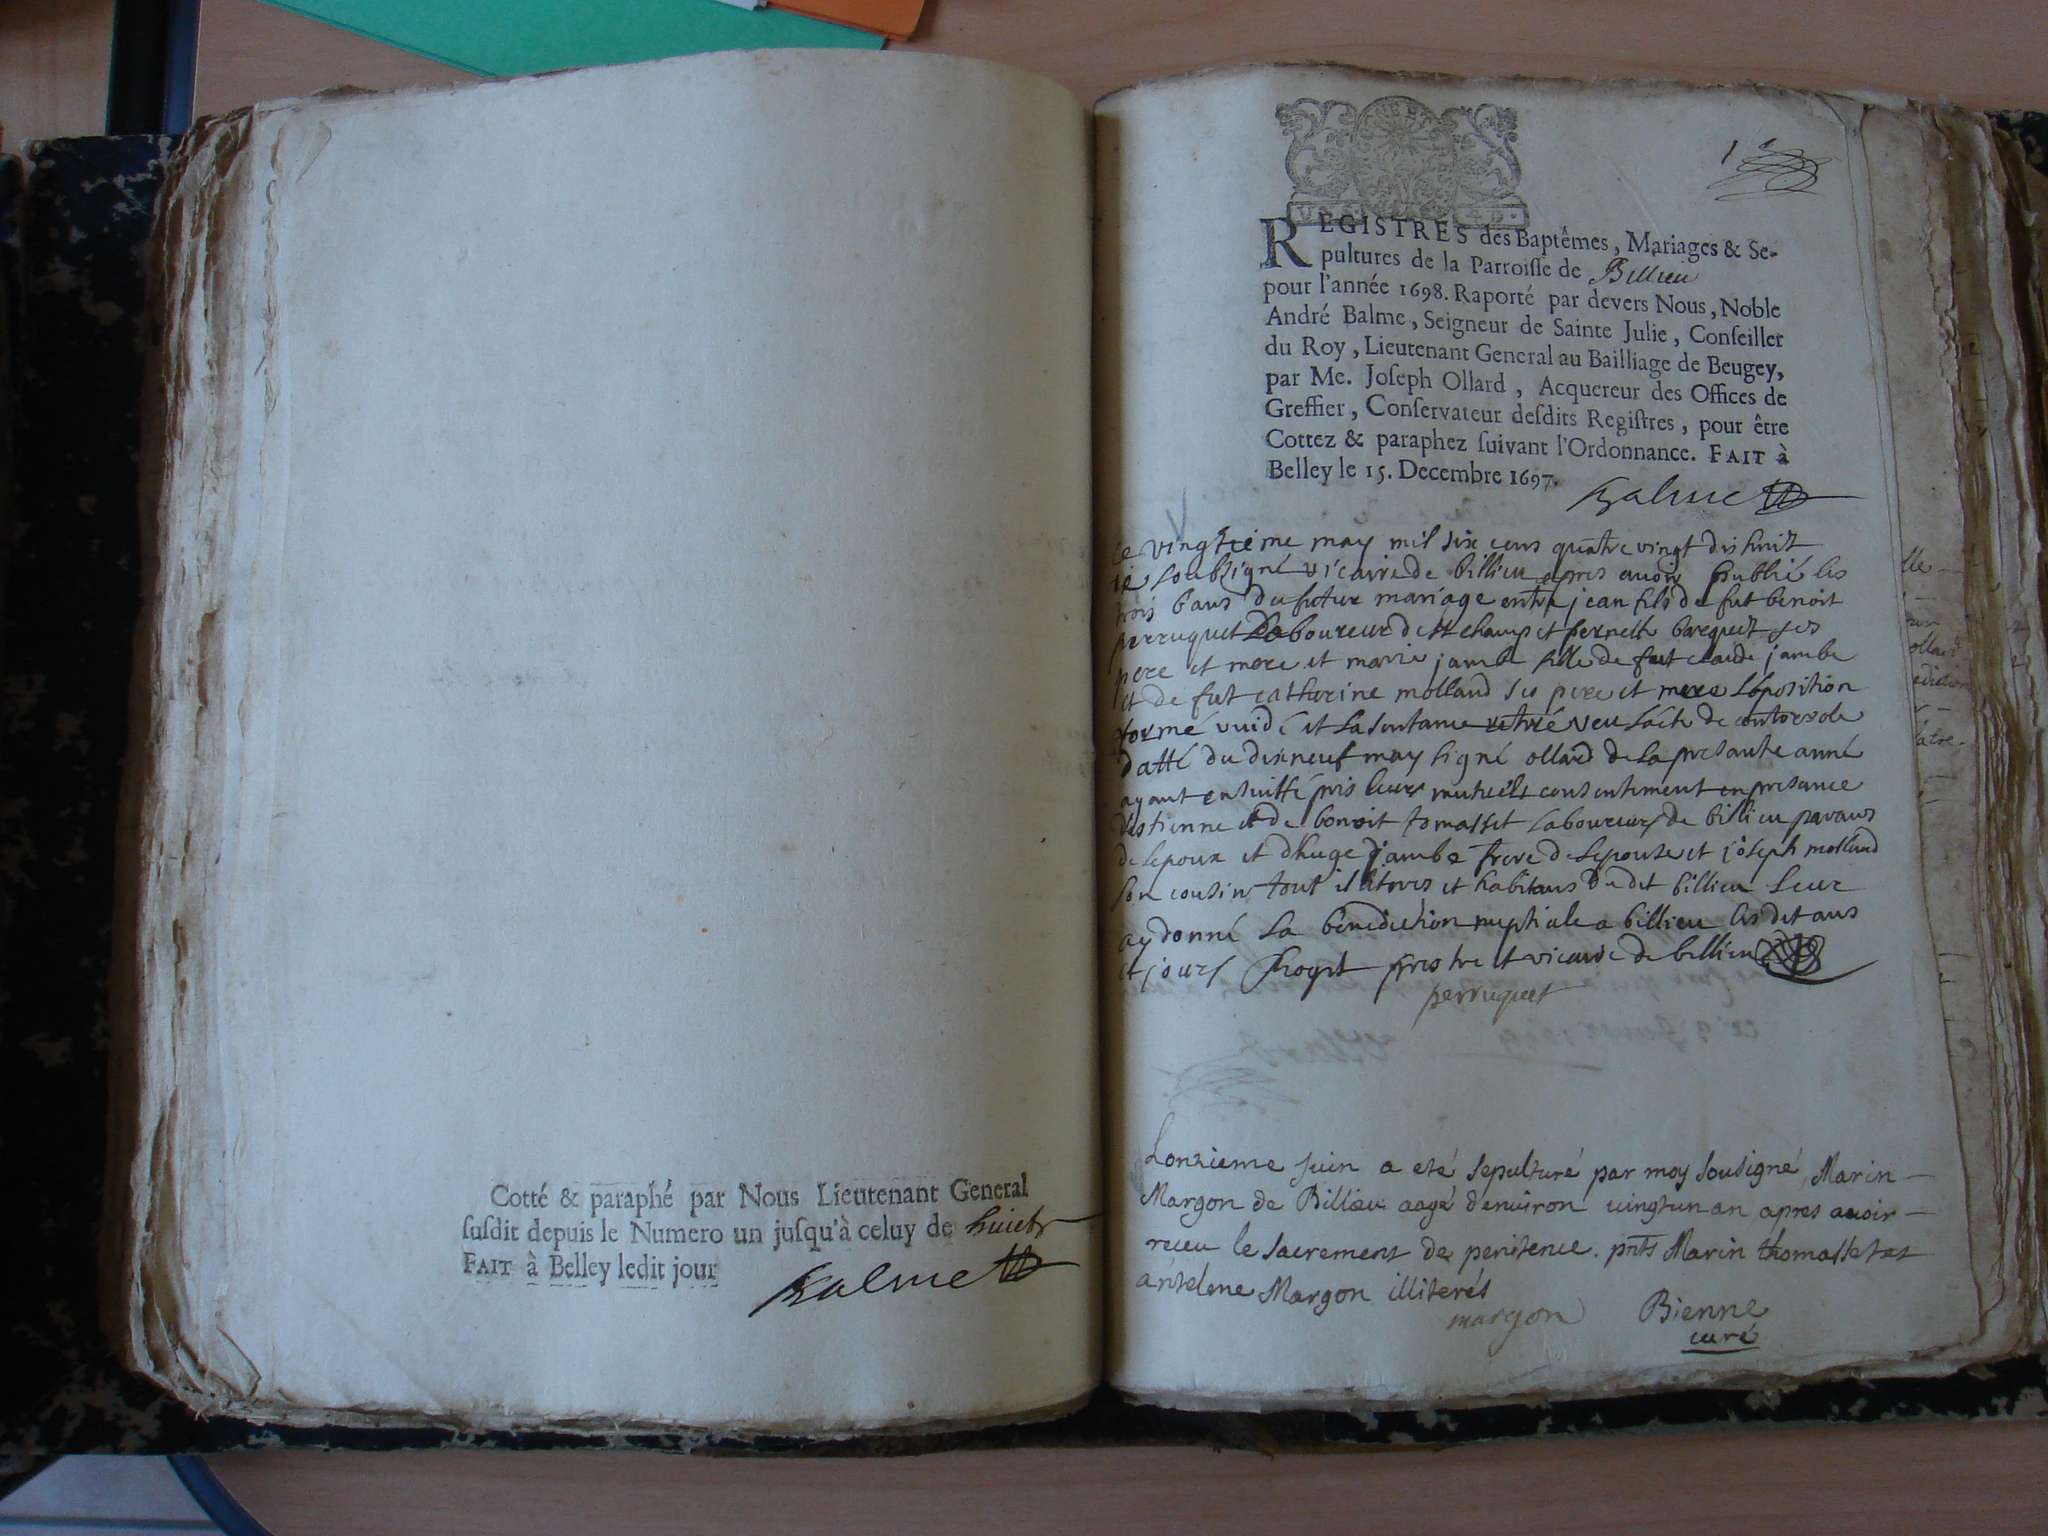 Cotté & paraphé par Nous Lieutenant General
susdit depuis le Numero un jusqu'à celuy de huict
FAIT à Belley ledit jour
Balme
1
REGISTRES des Baptêmes, Mariages & Se-
pultures de la Parroisse de Billieu
pour l'année 1698. Raporté par devers Nous, Noble
André Balme, Seigneur de Sainte Julie, Conseiller
du Roy, Lieutenant General au Bailliage de Beugey,
par Me. Joseph Ollard, Acquereur des Offices de
Greffier, Conservateur desdits Registres, pour être
Cottez & paraphez suivant l'Ordonnance. FAIT à
Belley le 15. Decembre 1697.
Balme
le vingtieme may mil six cens quatre vingt dix huit
ie soubsigné vicaire de billieu apres avoir publié les
trois bans du futur mariage entre jean fils de fut benoit
perruquet laboureur de et pernette ses
pere et mere et marie jambe fille de fut claude jambe
et de fut catherine molland ses pere et mere loposition
formé vuidé et la sentance retiré veu lacte de controole
datté du dixneuf may signé ollard de la presante anné
ayant ensuitté pris leurs mutuels consentiment en presance
destienne et de benoit tomasset laboureurs de billieu parans
de lepoux et dhuge jambe frere de lepouse et joseph molland
son cousin tout iliterés et habitans du dit billieu leur
ay donné la benediction nuptiale a billieu les dit ans
et jours prestre et vicaire de billieu
perruquet
Lonzieme juin a eté sepulturé par moy sousigné, Marin
Margon de Billieu aagé denviron vingtun an apres avoir
receu le sacrement de penitence. pnts Marin thomasset et
antelme Margon illiterés
margon Bienne
curé